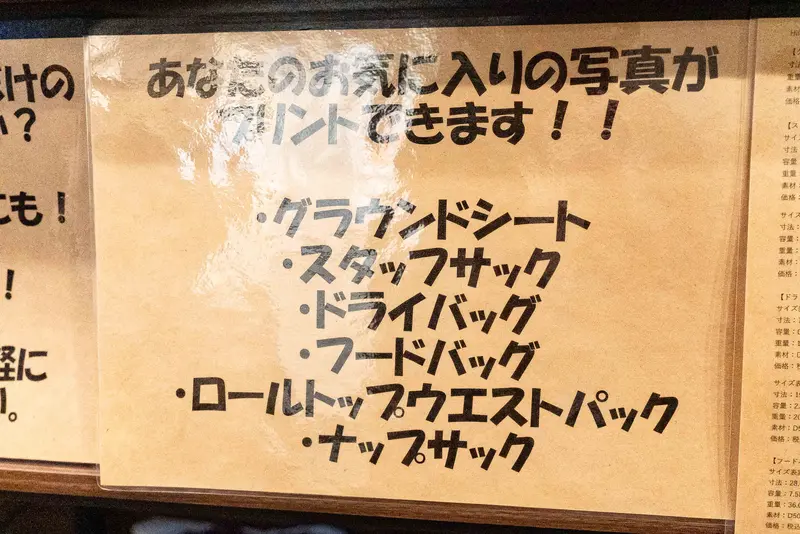 けの
？
も！
！
軽に
。
あなたのお気に入りの写真が
プリントできます！！
・グラウンドシート
・スタッフサック
・ドライバッグ
・フードバッグ
・ロールトップウエストパック
・ナップサック
寸法：
重量：
素材：
価格：
【ス
サイズ
寸法：
容量：
重量：
素材：
価格：
サイズ
寸法：
容量：
重量：
素材：
価格：
【ドラ
サイズ
寸法：
容量：
重量：
素材：
価格：
サイズ
寸法：
容量：
重量：
素材：
価格：
【フード
サイズ
寸法：28.
容量：7.5
重量：36.
素材：D50
価格：税込